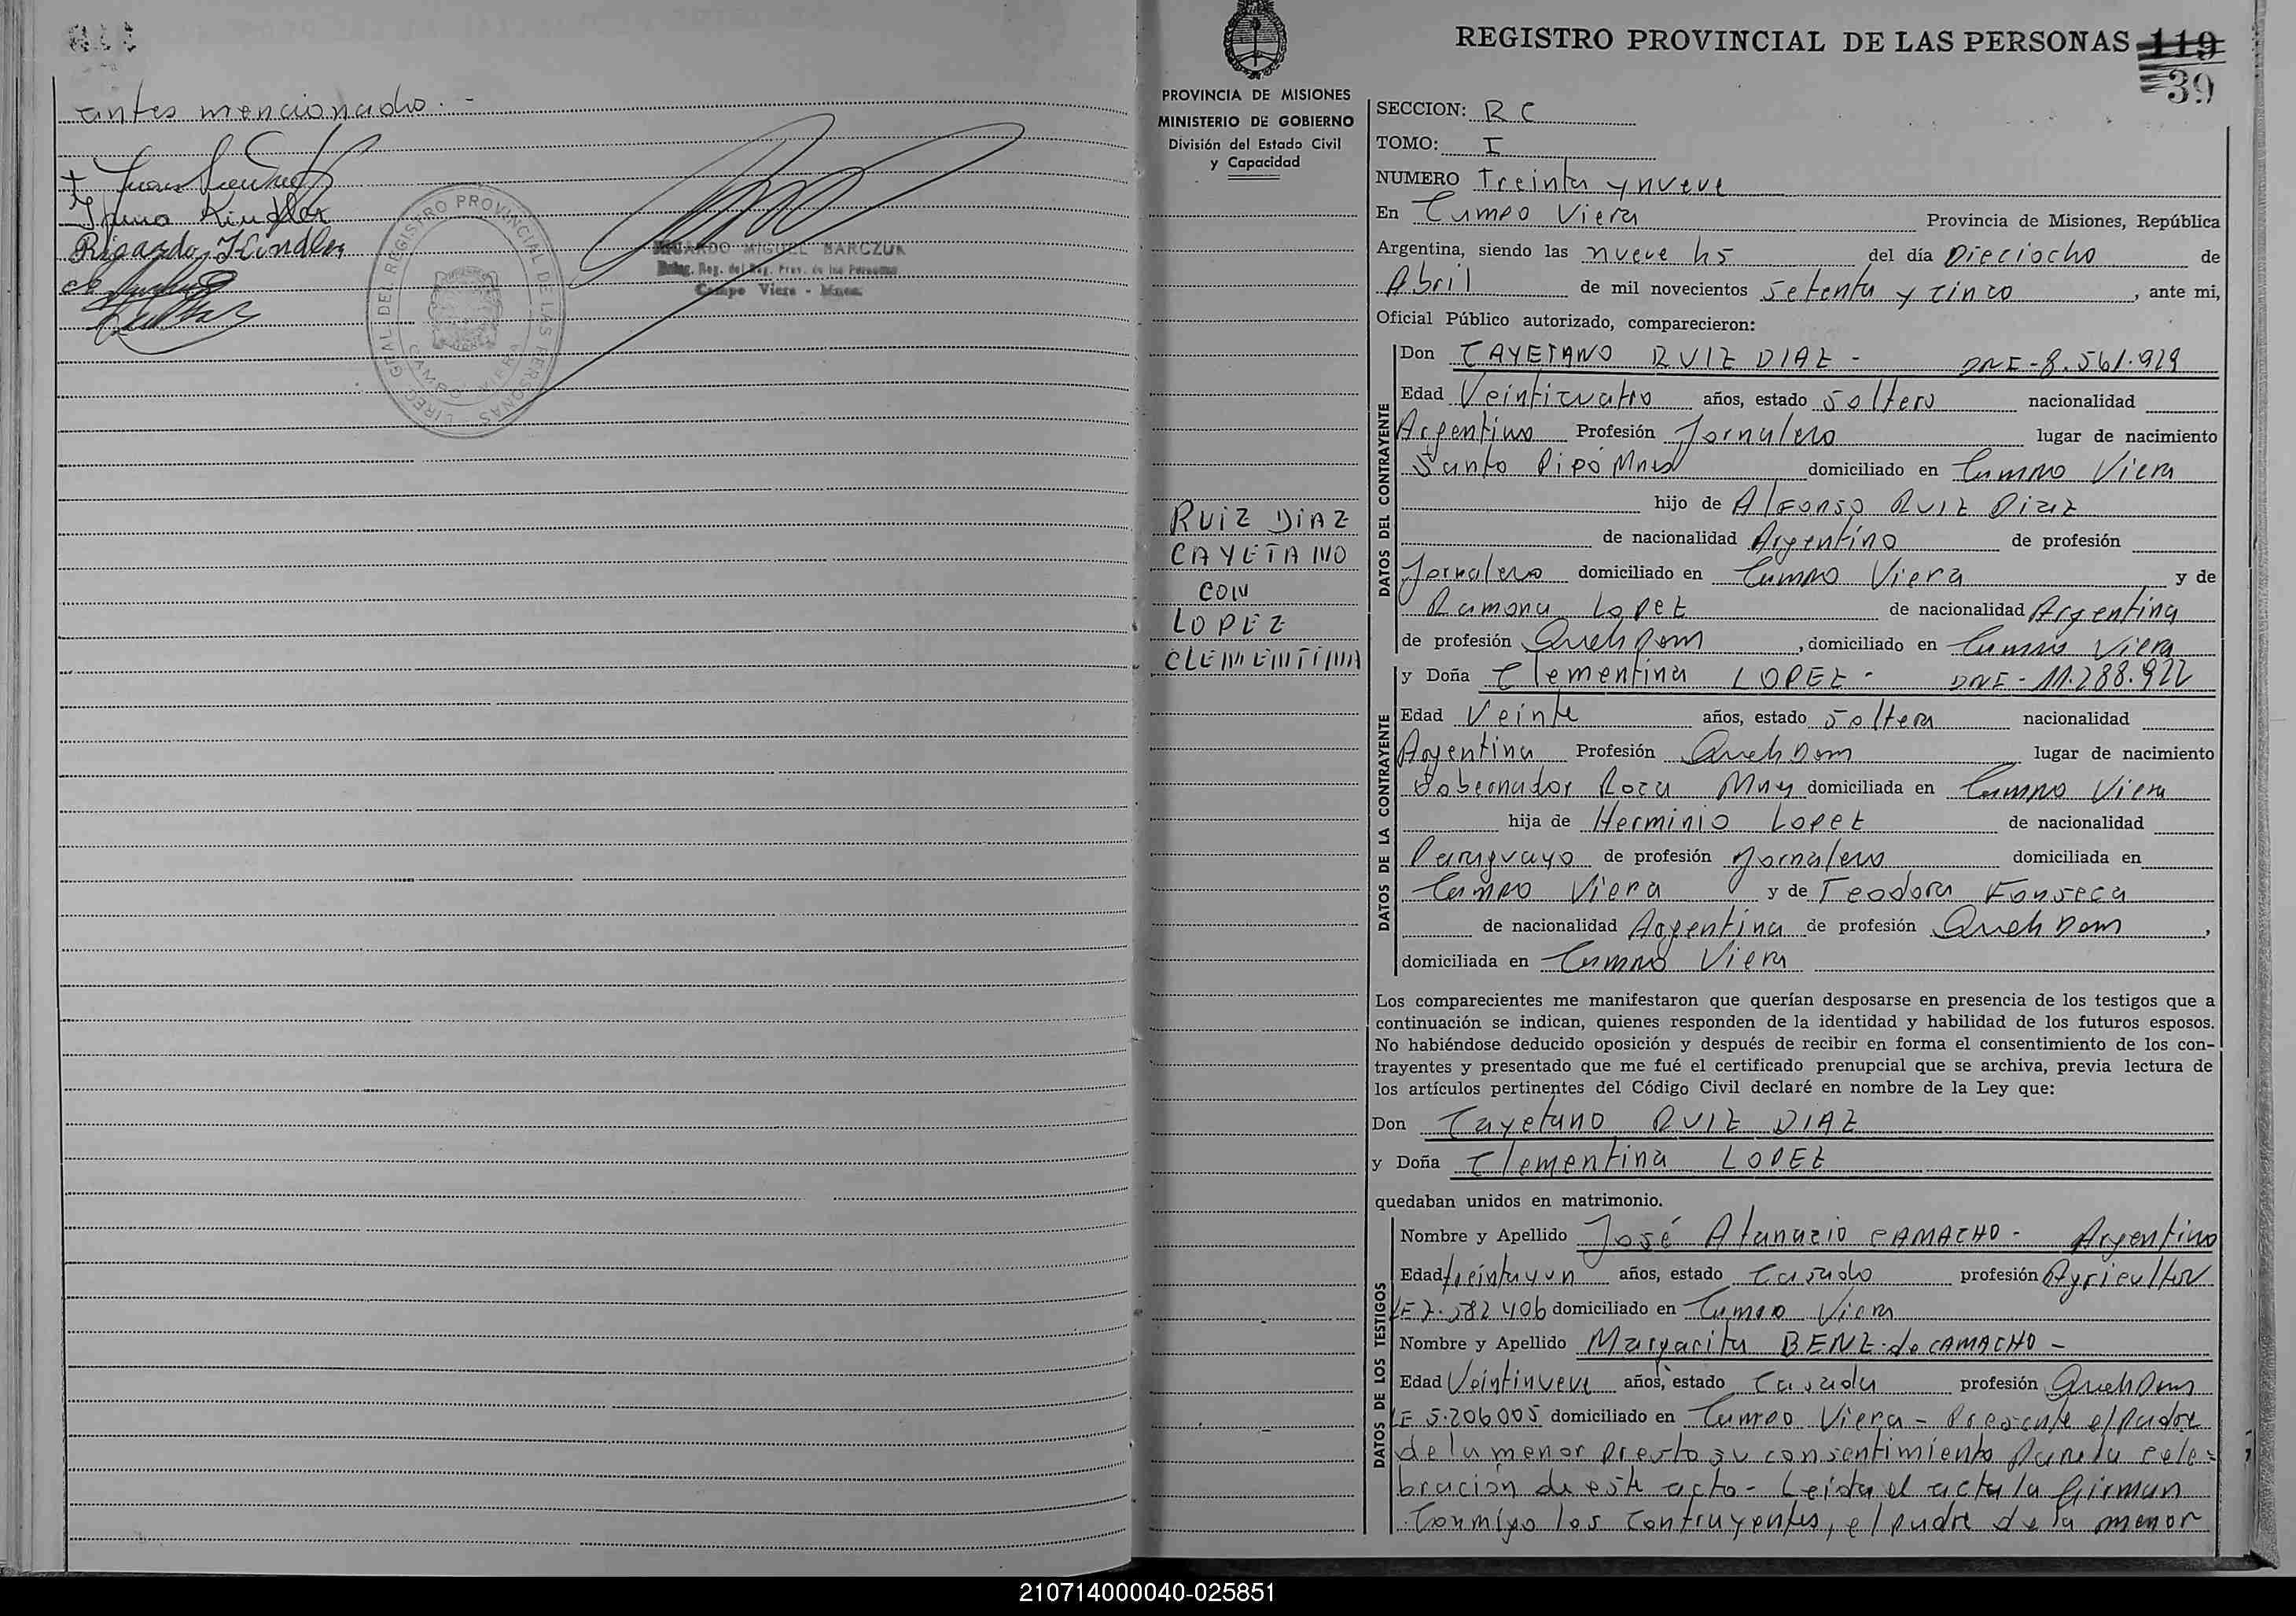 antes mencionado.-
Ricardo Kindler
DIREC. GRAL. DEL REGISTRO PROVINCIAL DE LAS PERSONAS
CAMPO VIERA
RICARDO MIGUEL BARCZUK
Deleg. Reg. del Reg. Prov. de las Personas
Campo Viera - Mnes.
REGISTRO PROVINCIAL DE LAS PERSONAS 119
39
PROVINCIA DE MISIONES
MINISTERIO DE GOBIERNO
División del Estado Civil
y Capacidad
RUIZ DIAZ
CAYETANO
CON
LOPEZ
CLEMENTINA
SECCION: RC
TOMO: I
NUMERO Treinta y nueve
En Campo Viera Provincia de Misiones, República
Argentina, siendo las nueve hs del día Dieciocho de
Abril de mil novecientos setenta y cinco, ante mi,
Oficial Público autorizado, comparecieron:
DATOS DEL CONTRAYENTE
Don CAYETANO RUIZ DIAZ - DNI-8.561.929
Edad Veinticuatro años, estado soltero nacionalidad
Argentino Profesión Jornalero lugar de nacimiento
Santo Pipó Mnes domiciliado en Campo Viera
hijo de Alfonso RUIZ DIAZ
de nacionalidad Argentino de profesión
Jornalero domiciliado en Campo Viera y de
Ramona Lopez de nacionalidad Argentina
de profesión Queh Dom, domiciliado en Campo Viera
DATOS DE LA CONTRAYENTE
y Doña Clementina LOPEZ - DNI-11.288.922
Edad Veinte años, estado soltera nacionalidad
Argentina Profesión Queh Dom lugar de nacimiento
Gobernador Roca Mnes domiciliada en Campo Viera
hija de Herminio Lopez de nacionalidad
Paraguayo de profesión Jornalero domiciliada en
Campo Viera y de Teodora Fonseca
de nacionalidad Argentina de profesión Queh Dom,
domiciliada en Campo Viera
Los comparecientes me manifestaron que querían desposarse en presencia de los testigos que a
continuación se indican, quienes responden de la identidad y habilidad de los futuros esposos.
No habiéndose deducido oposición y después de recibir en forma el consentimiento de los con-
trayentes y presentado que me fué el certificado prenupcial que se archiva, previa lectura de
los artículos pertinentes del Código Civil declaré en nombre de la Ley que:
Don Cayetano RUIZ DIAZ
y Doña Clementina LOPEZ
quedaban unidos en matrimonio.
DATOS DE LOS TESTIGOS
Nombre y Apellido José Atanazio CAMACHO - Argentino
Edad treinta y un años, estado Casado profesión Agricultor
LE 7.582 406 domiciliado en Campo Viera
Nombre y Apellido Margarita BENZ de CAMACHO -
Edad Veintinueve años, estado Casada profesión Queh Dom
LE 5.206005 domiciliado en Campo Viera - Presente el padre
de la menor presto su consentimiento para la cele=
bración de este acto - Leida el acta la firman
Conmigo los contrayentes, el padre de la menor
210714000040-025851